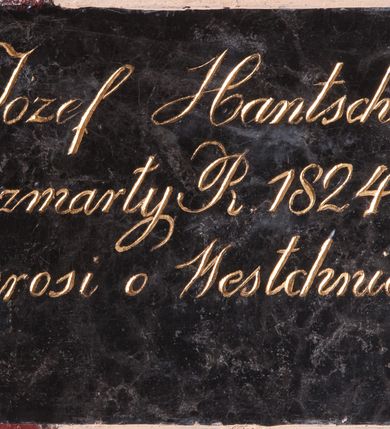 Jozef Hantsch
zmarły R. 1824
prosi o Westchnie